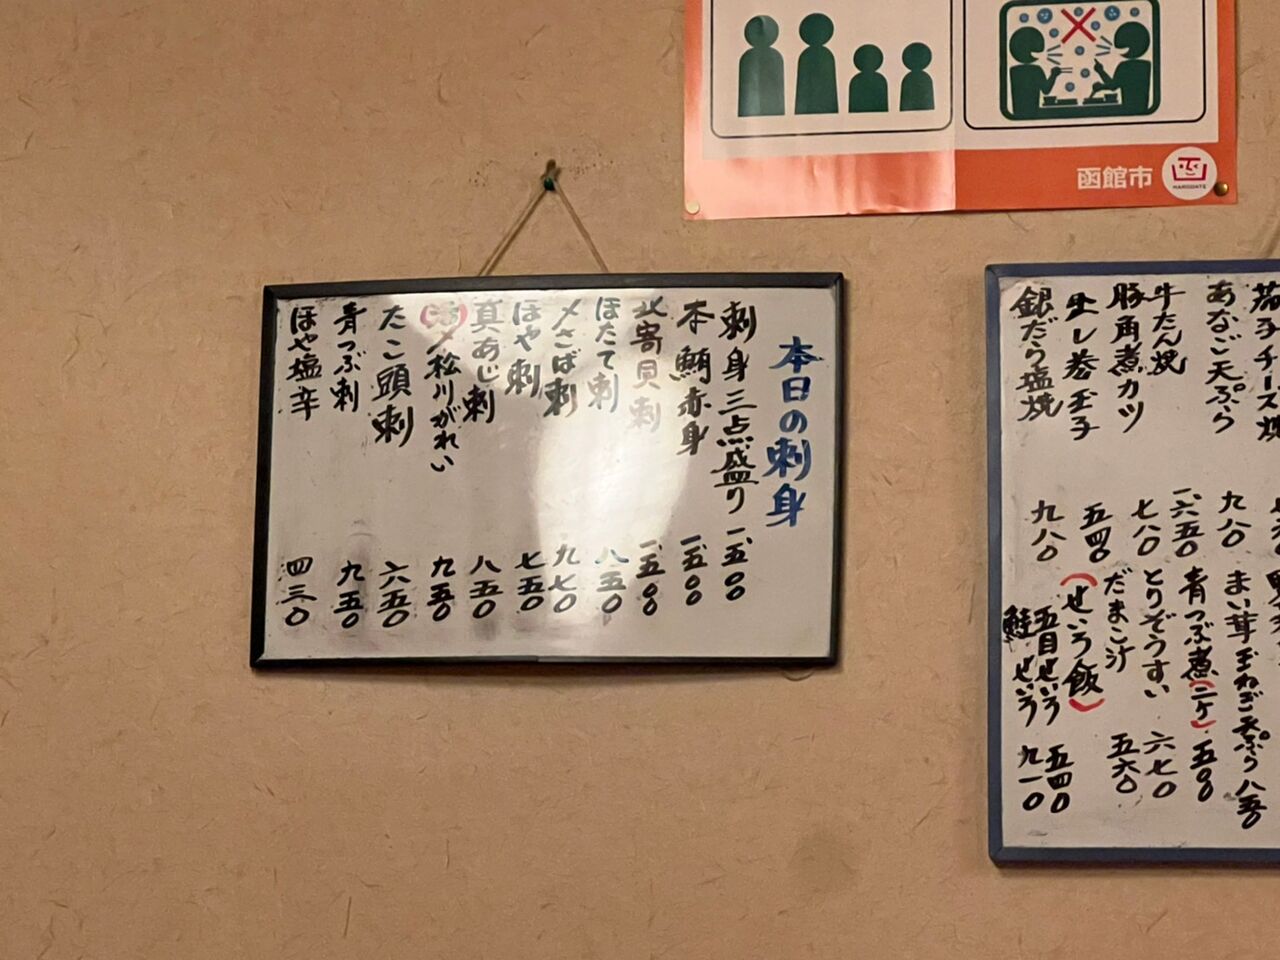 函館市
HAKODATE
本日の刺身
刺身三点盛り 一、五〇〇
本鮪赤身 一、五〇〇
北寄貝刺 一、五〇〇
ほたて刺 八五〇
〆さば刺 九七〇
ほや刺 七五〇
真あじ刺 八五〇
(活)〆松川がれい 九五〇
たこ頭刺 六五〇
青つぶ刺 九五〇
ほや塩辛 四三〇
茄子チーズ焼
あなご天ぷら 九八〇
牛たん焼 一、六五〇
豚角煮カツ 七八〇
生し巻玉子 五四〇
銀だら塩焼 九八〇
まい茸玉ねぎ天ぷら 八五〇
青つぶ煮(二ケ) 五〇〇
とりぞうすい 六七〇
だまこ汁 五六〇
(せいろ飯)
五目せいろ 五四〇
鮭せいろ 九一〇